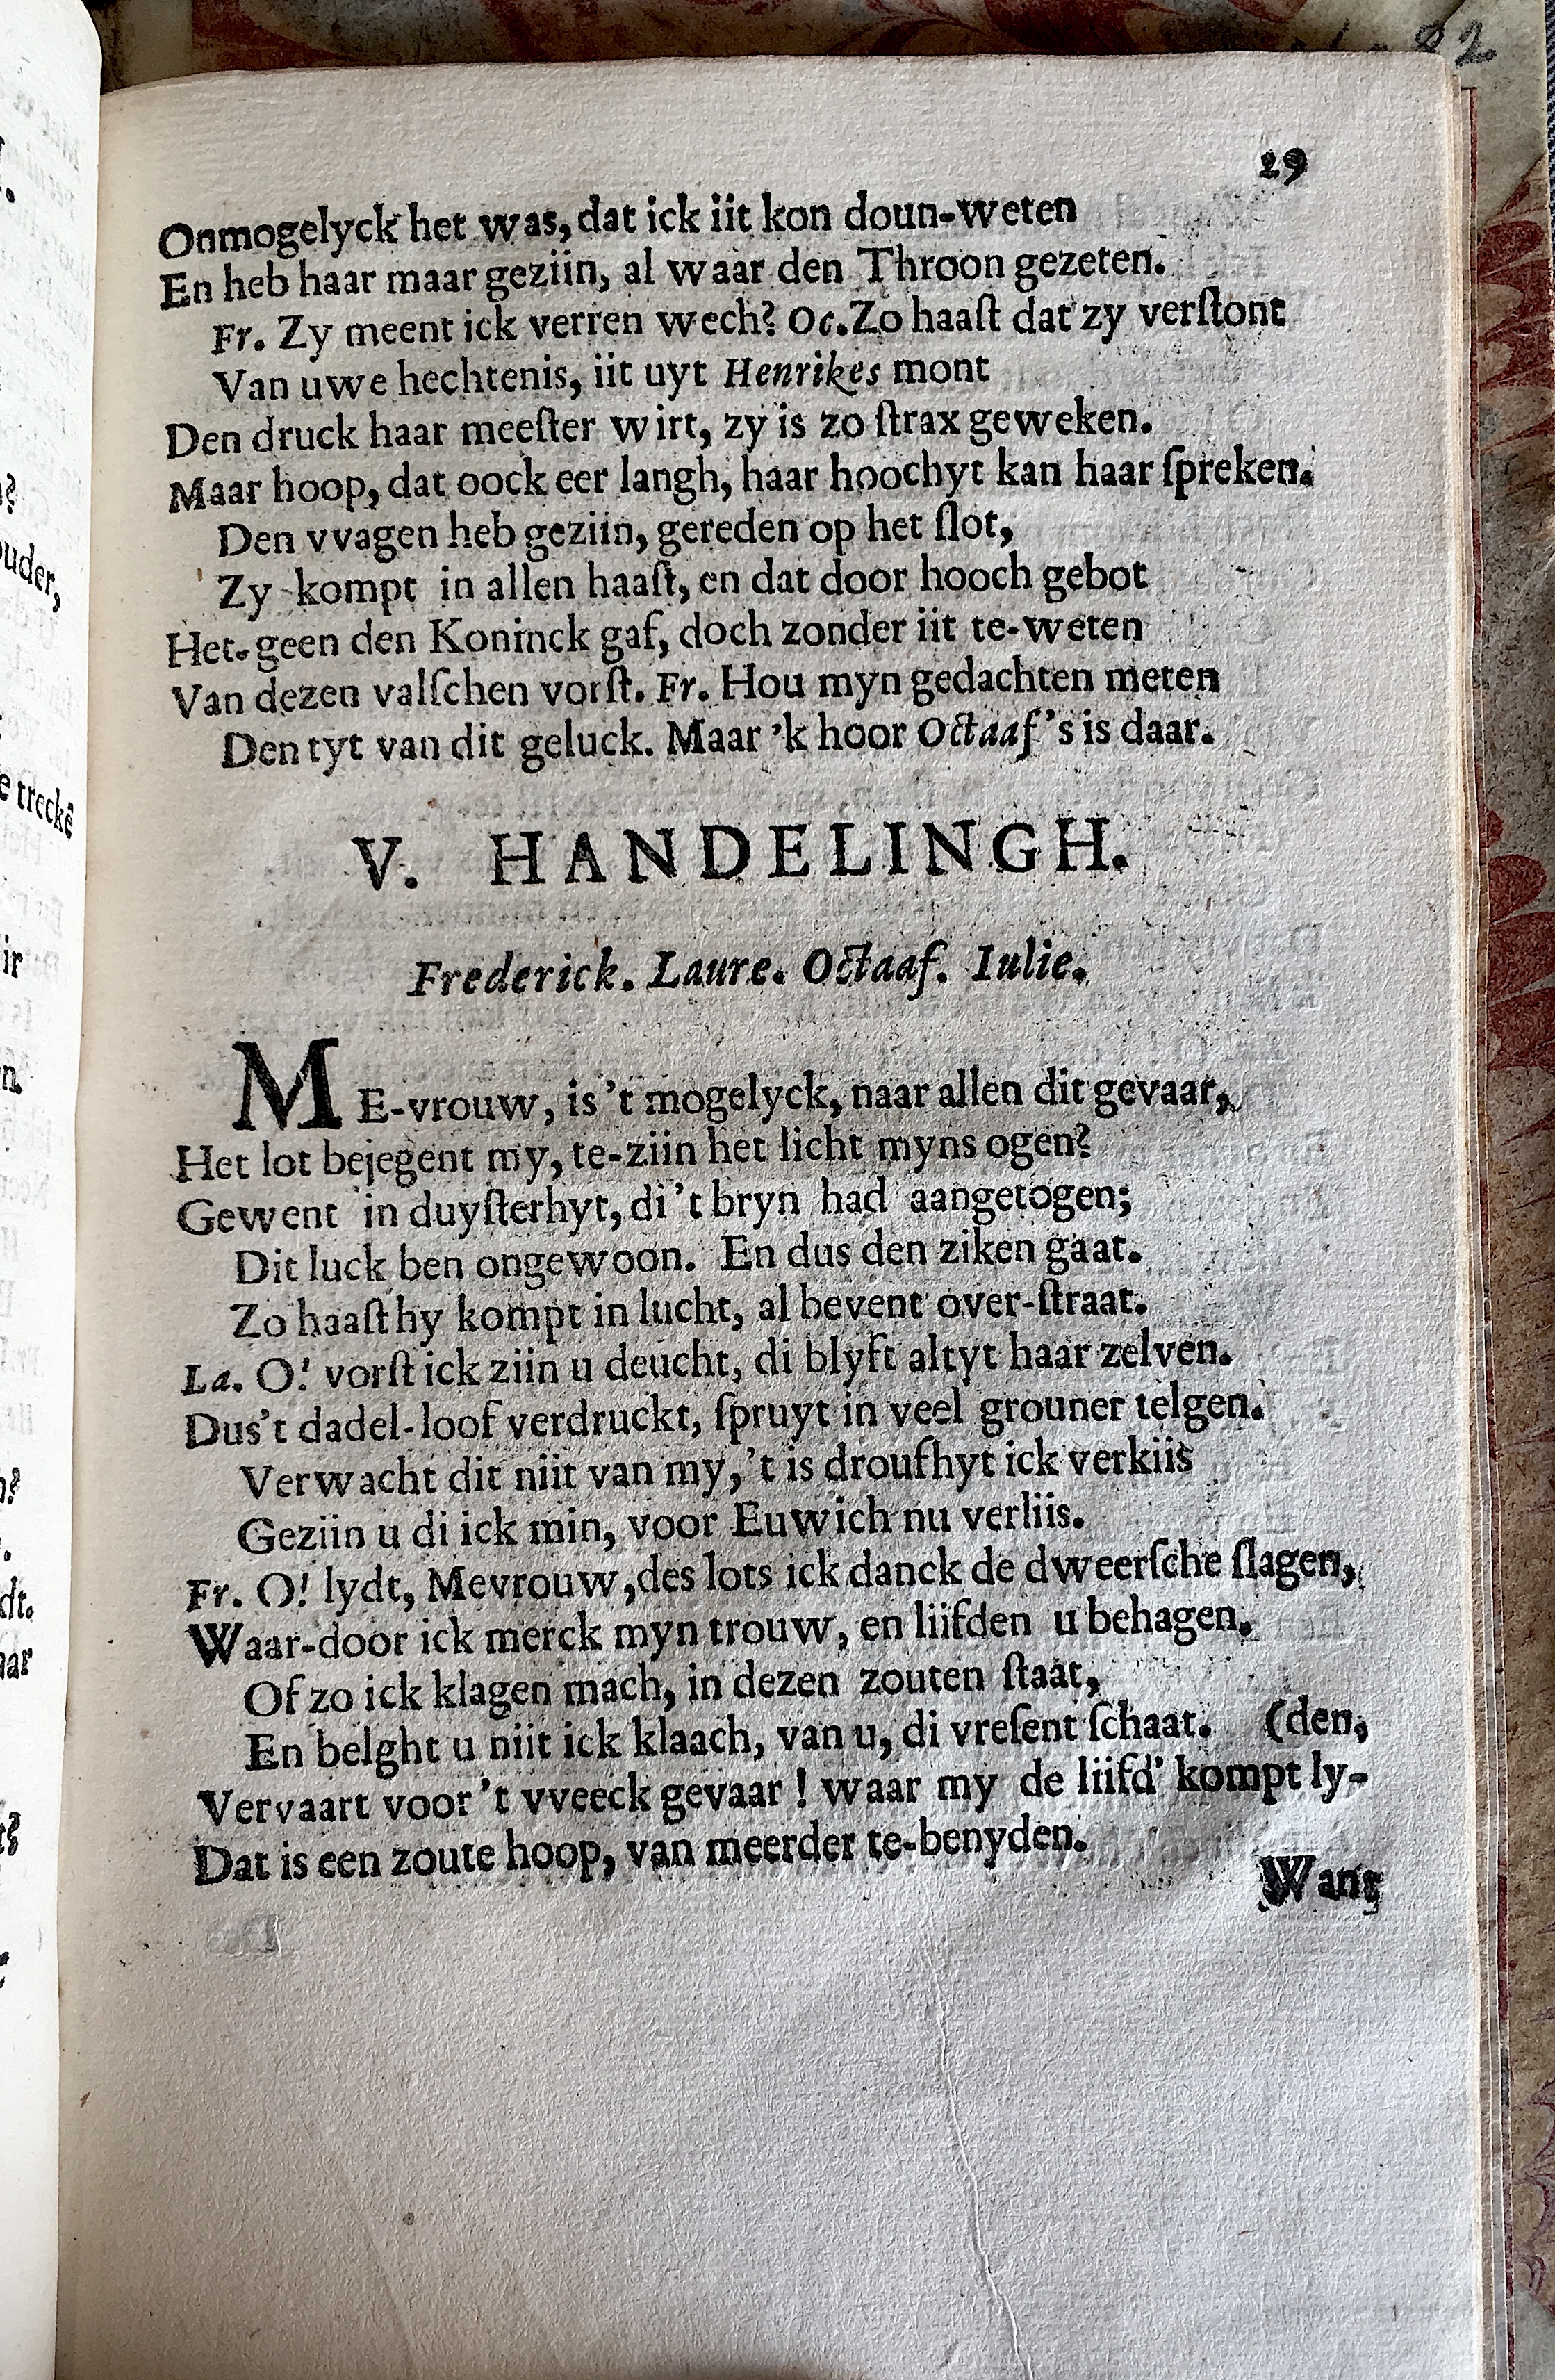 29
Onmogelyck het was, dat ick iit kon doun-weten
En heb haar maar geziin, al waar den Throon gezeten.
Fr. Zy meent ick verren wech? Oc. Zo haaſt dat zy verſtont
Van uwe hechtenis, iit uyt Henrikes mont
Den druck haar meeſter wirt, zy is zo ſtrax geweken.
Maar hoop, dat oock eer langh, haar hoochyt kan haar ſpreken.
Den vvagen heb geziin, gereden op het ſlot,
Zy kompt in allen haaſt, en dat door hooch gebot
Het-geen den Koninck gaf, doch zonder iit te-weten
Van dezen valſchen vorſt. Fr. Hou myn gedachten meten
Den tyt van dit geluck. Maar 'k hoor Octaaf 's is daar.
V. HANDELINGH.
Frederick. Laure. Octaaf. Iulie.
ME-vrouw, is 't mogelyck, naar allen dit gevaar,
Het lot bejegent my, te-ziin het licht myns ogen?
Gewent in duyſterhyt, di 't bryn had aangetogen;
Dit luck ben ongewoon. En dus den ziken gaat.
Zo haaſt hy kompt in lucht, al bevent over-ſtraat.
La. O! vorſt ick ziin u deucht, di blyft altyt haar zelven.
Dus 't dadel-loof verdruckt, ſpruyt in veel grouner telgen.
Verwacht dit niit van my, 't is droufhyt ick verkiis
Geziin u di ick min, voor Euwich nu verliis.
Fr. O! lydt, Mevrouw, des lots ick danck de dweerſche ſlagen,
Waar-door ick merck myn trouw, en liifden u behagen.
Of zo ick klagen mach, in dezen zouten ſtaat,
En belght u niit ick klaach, van u, di vreſent ſchaat. (den,
Vervaart voor 't vveeck gevaar! waar my de liifd' kompt ly-
Dat is een zoute hoop, van meerder te-benyden.
Want